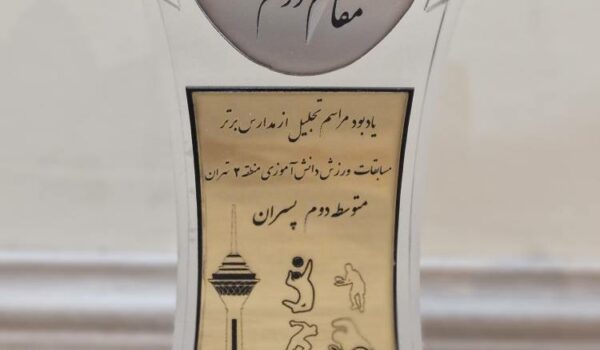 مقام دوم
یادبود مراسم تجلیل از مدارس برتر
مسابقات ورزش دانش آموزی منطقه ۲ تهران
متوسطه دوم پسران